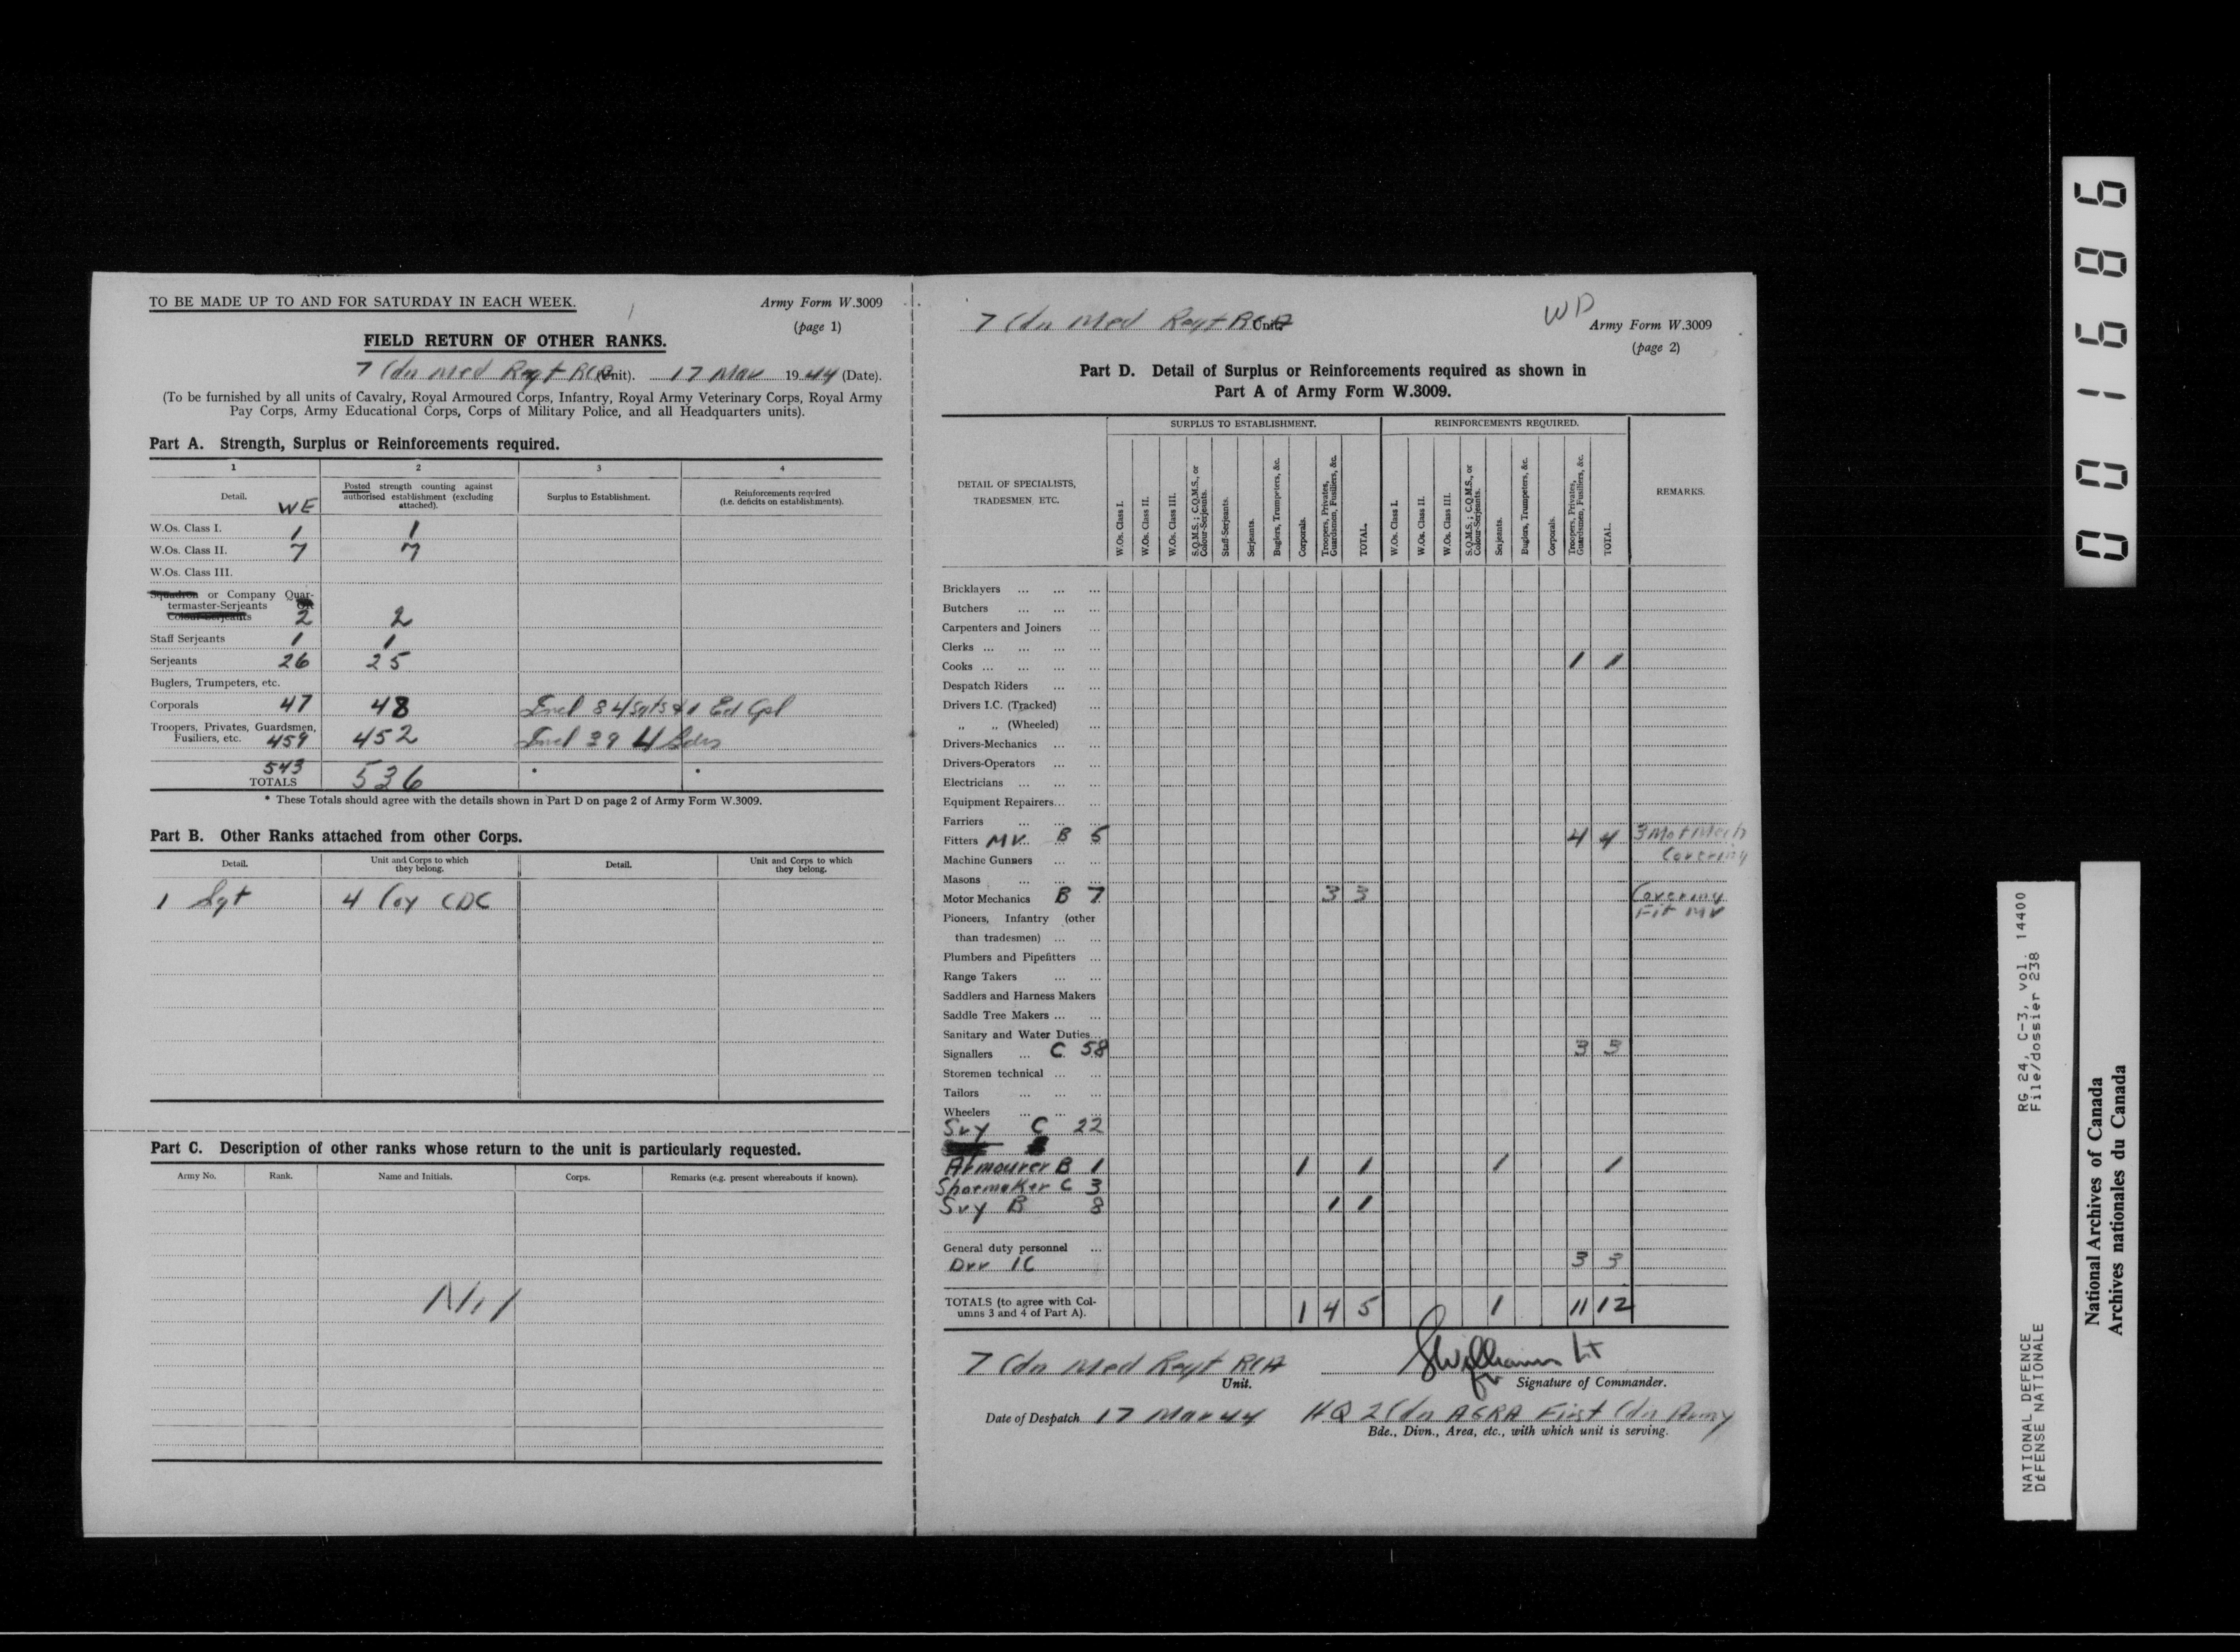 TO BE MADE UP TO AND FOR SATURDAY IN EACH WEEK.
Army Form W.3009
(page 1)
FIELD RETURN OF OTHER RANKS.
7 Cdn Med Regt RCA (Unit). 17 Mar 1944 (Date).
(To be furnished by all units of Cavalry, Royal Armoured Corps, Infantry, Royal Army Veterinary Corps, Royal Army
Pay Corps, Army Educational Corps, Corps of Military Police, and all Headquarters units).
Part A. Strength, Surplus or Reinforcements required.
1 2 3 4
Detail. WE
Posted strength counting against
authorised establishment (excluding
attached).
Surplus to Establishment.
Reinforcements required
(i.e. deficits on establishments).
W.Os. Class I. 1 1
W.Os. Class II. 7 7
W.Os. Class III.
Squadron or Company Quar-
termaster-Serjeants or
Colour-Serjeants 2 2
Staff Serjeants 1 1
Serjeants 26 25
Buglers, Trumpeters, etc.
Corporals 47 48 Incl 8 L/Sgts & 1 Ed Cpl
Troopers, Privates, Guardsmen,
Fusiliers, etc. 459 452 Incl 39 L/Bdrs
543
TOTALS 536 * *
* These Totals should agree with the details shown in Part D on page 2 of Army Form W.3009.
Part B. Other Ranks attached from other Corps.
Detail.
Unit and Corps to which
they belong.
Detail.
Unit and Corps to which
they belong.
1 Sgt 4 Coy CDC
Part C. Description of other ranks whose return to the unit is particularly requested.
Army No. Rank. Name and Initials. Corps. Remarks (e.g. present whereabouts if known).
Nil
7 Cdn Med Regt RCA Unit.
WD
Army Form W.3009
(page 2)
Part D. Detail of Surplus or Reinforcements required as shown in
Part A of Army Form W.3009.
DETAIL OF SPECIALISTS,
TRADESMEN, ETC.
SURPLUS TO ESTABLISHMENT.
REINFORCEMENTS REQUIRED.
REMARKS.
W.Os. Class I.
W.Os. Class II.
W.Os. Class III.
S.Q.M.S.; C.Q.M.S., or
Colour-Serjeants.
Staff-Serjeants.
Serjeants.
Buglers, Trumpeters, &c.
Corporals.
Troopers, Privates,
Guardsmen, Fusiliers, &c.
TOTAL.
W.Os. Class I.
W.Os. Class II.
W.Os. Class III.
S.Q.M.S.; C.Q.M.S., or
Colour-Serjeants.
Serjeants.
Buglers, Trumpeters, &c.
Corporals.
Troopers, Privates,
Guardsmen, Fusiliers, &c.
TOTAL.
Bricklayers ... ... ...
Butchers ... ... ...
Carpenters and Joiners ...
Clerks ... ... ... ...
Cooks ... ... ... ... 1 1
Despatch Riders ... ...
Drivers I.C. (Tracked) ...
„ „ (Wheeled) ...
Drivers-Mechanics ... ...
Drivers-Operators ... ...
Electricians ... ... ...
Equipment Repairers... ...
Farriers ... ... ...
Fitters MV B 5 4 4 3 Mot Mech
Machine Gunners ... ... Covering
Masons ... ... ...
Motor Mechanics B 7 3 3 Covering
Fit MV
Pioneers, Infantry (other
than tradesmen) ... ...
Plumbers and Pipefitters ...
Range Takers ... ...
Saddlers and Harness Makers
Saddle Tree Makers ... ...
Sanitary and Water Duties...
Signallers ... C 58 3 3
Storemen technical ... ...
Tailors ... ... ...
Wheelers ... ... ...
Svy C 22
Armourer B 1 1 1 1 1
Shoemaker C 3
Svy B 8 1 1
General duty personnel ...
Dvr IC 3 3
TOTALS (to agree with Col-
umns 3 and 4 of Part A). 1 4 5 1 11 12
7 Cdn Med Regt RCA
Unit.
SWilliams Lt
for
Signature of Commander.
Date of Despatch 17 Mar 44
HQ 2 Cdn AGRA First Cdn Army
Bde., Divn., Area, etc., with which unit is serving.
0001686
NATIONAL DEFENCE RG 24, C-3, vol. 14400
DÉFENSE NATIONALE File/dossier 238
National Archives of Canada
Archives nationales du Canada